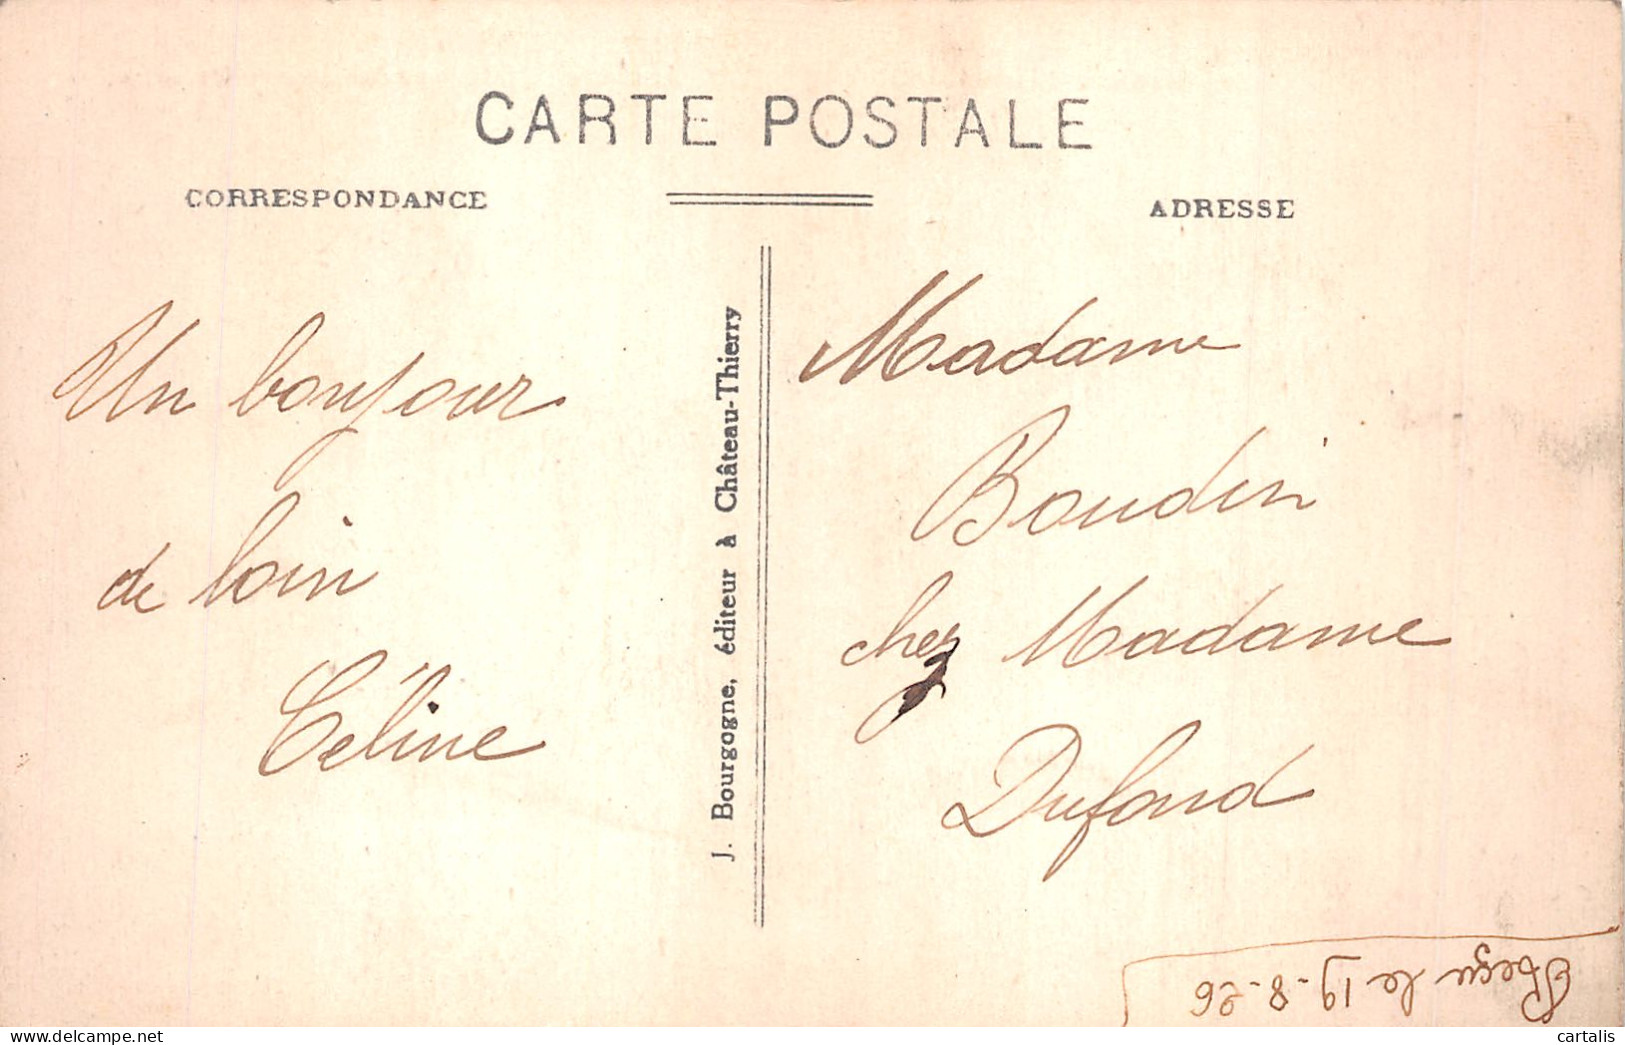 CARTE POSTALE
CORRESPONDANCE
ADRESSE
Un bonjour
de loin
Céline
J. Bourgogne, éditeur à Château-Thierry
Madame
Boudin
chez Madame
Dufond
Reçu le 19-8-26
cartalis
delcampe.net